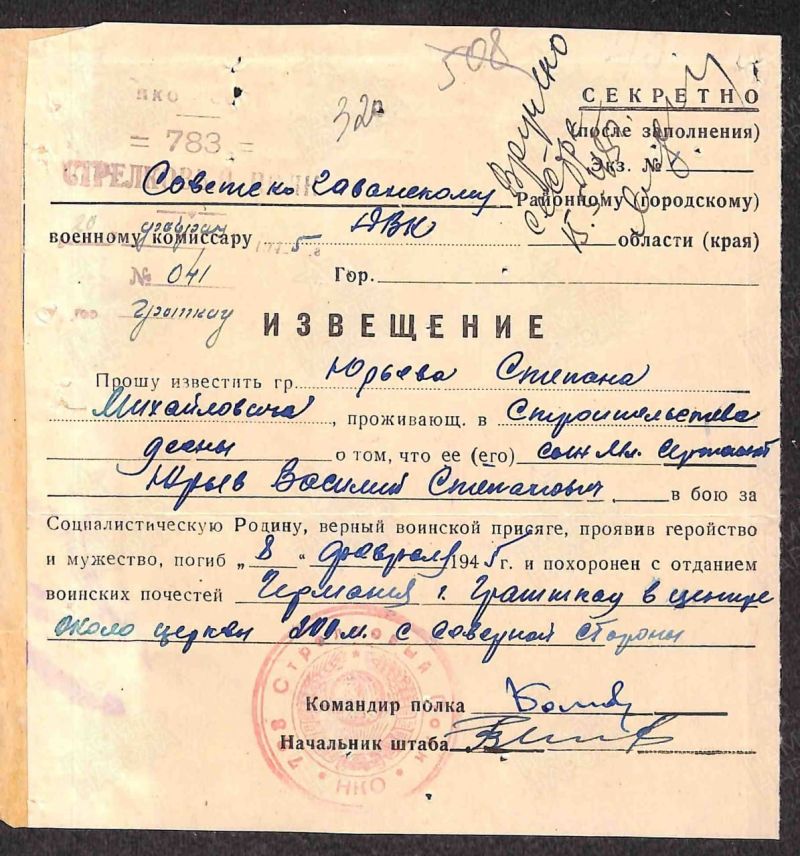 508
32а
СЕКРЕТНО
(после заполнения)
Экз. №
Вручено
НКО
= 783 =
СТРЕЛКОВЫЙ ПОЛК
20 февраля 1945
№ 041
гор Гроткау
Советско Гаванскому Районному (городскому)
военному комиссару ДВК области (края)
Гор.
ИЗВЕЩЕНИЕ
Прошу известить гр. Юрьева Степана
Михайловича, проживающ. в Строительства
о том, что ее (его) сын Мл. Сержант
Юрьев Василий Степанович в бою за
Социалистическую Родину, верный воинской присяге, проявив геройство
и мужество, погиб „8" февраля 1945 г. и похоронен с отданием
воинских почестей Германия г. Грашткау в центре
около церкви 200 м. с северной стороны
Командир полка
Начальник штаба
783 Стрелковый Полк
• НКО •